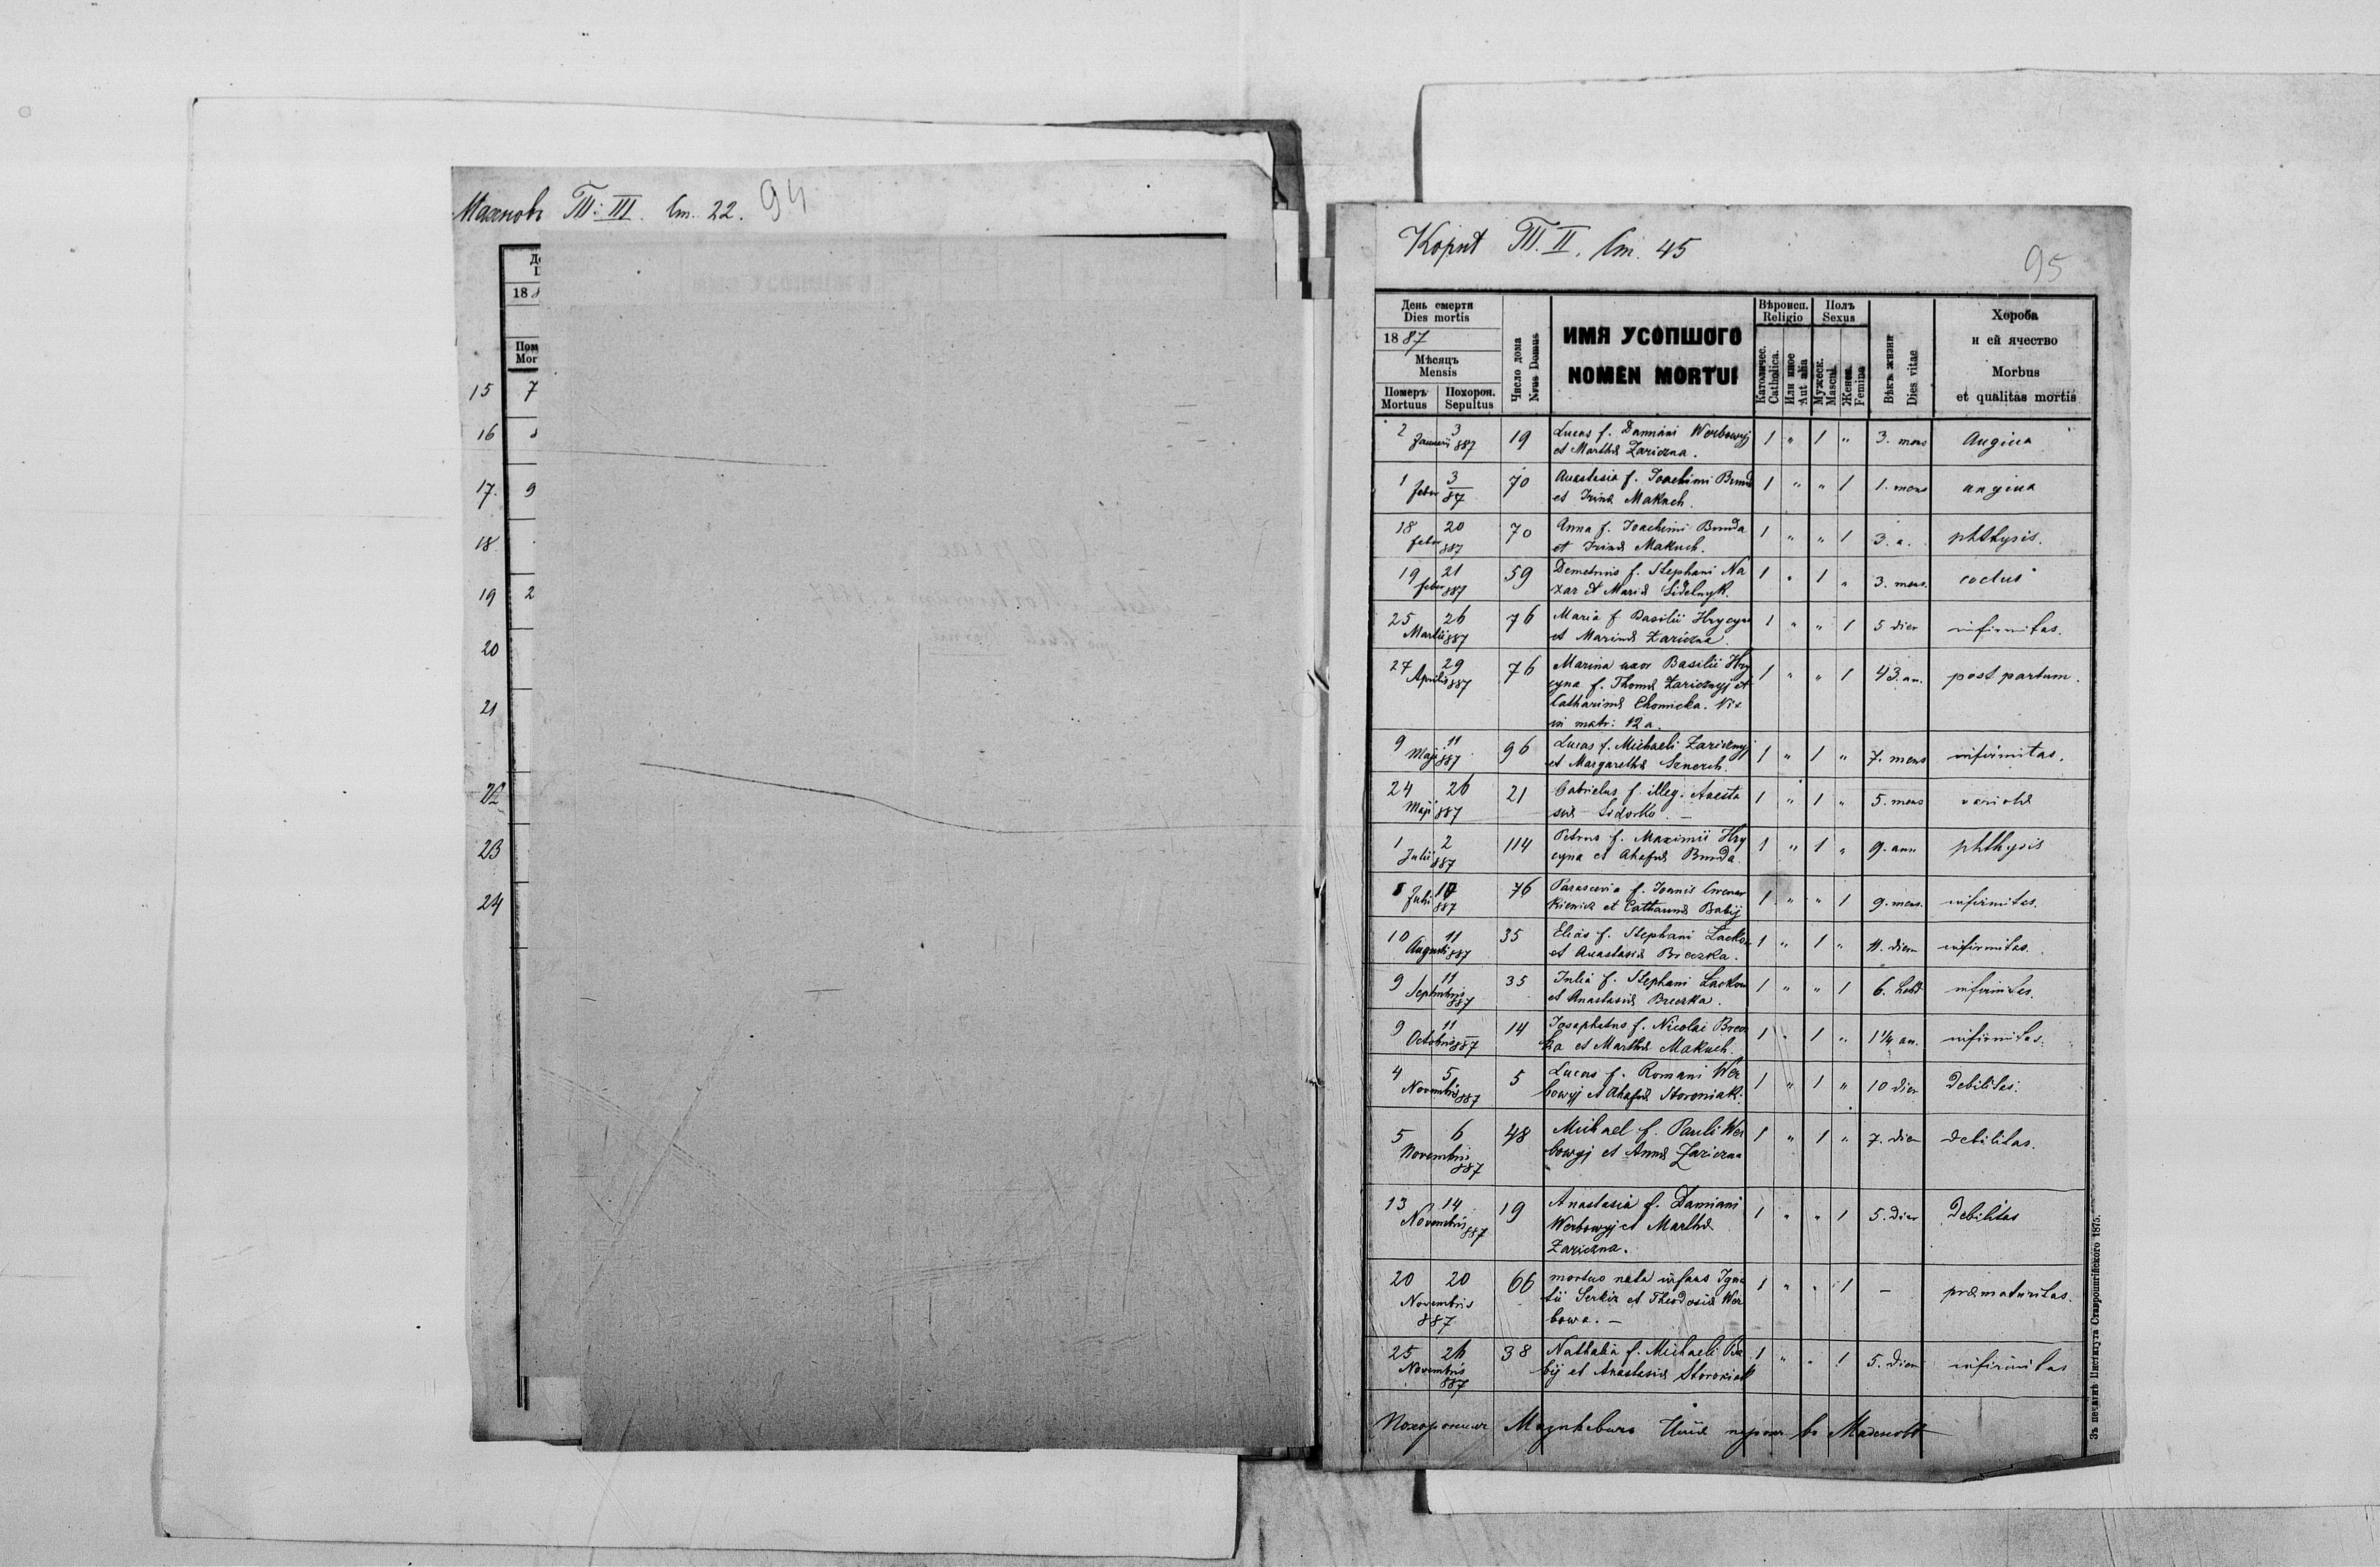 Махновъ Т: III. Ст. 22. 94
188
15 7
16
17. 9
18
19 2
20
21
22
23
24
Т. II. Ст. 45
95
День смерти
Dies mortis
1887
Мѣсяцъ
Mensis
Померъ
Mortuus
Похорон.
Sepultus
Число дома
Nrus Domus
ИМЯ УСОПШОГО
NOMEN MORTUI
Вѣроисп.
Religio
Католичес.
Catholica.
Или иное
Aut alia
Полъ
Sexus
Мужеск.
Mascul.
Женск.
Femina
Вѣкъ жизни
Dies vitae
Хороба
и ей ячество
Morbus
et qualitas mortis
2 3 19 Lucas f. Damiani Werbowyj 1 " 1 " 3. mens Angina
Januarii 887 et Martha Zariczna.
1 3 70 Anastasia f. Joachimi Bunda 1 " " 1 1. mens angina
febr 87 et Irina Makuch.
18 20 70 Anna f. Joachimi Bunda 1 " " 1 3. a. phthysis.
febr 887 et Irina Makuch.
19 21 59 Demetrius f. Stephani Na 1 " 1 " 3. mens.
febr 887 zar et Maria Sidelnyk.
25 26 76 Maria f. Basilii Hrycyna 1 " " 1 5 dier infirmitas.
Martii 887 et Marina Zariczna.
27 29 76 Marina uxor Basilii Hry 1 " " 1 43. an. post partum.
Aprilis 887 cyna f. Thoma Zaricznyj et
Catharina Chomicka. Vix
in matr: 12 a.
9 11 96 Lucas f. Michaeli Zaricznyj 1 " 1 " 7. mens infirmitas.
Maji 887 et Margaretha
24 26 21 Gabrielus f. illeg. Anasta 1 " 1 " 5. mens variola
Maji 887 sia Sidorko. —
1 2 114 Petrus f. Maximii Hry 1 " 1 " 9. ann phthysis
Julii 887 cyna et Ahafia Bunda.
76 Parascevia f. Joannis 1 " " 1 9. mens. infirmitas.
Julii 887 et Catharina Babij
10 11 35 Elias f. Stephani Lacko 1 " 1 " 11. dierum infirmitas.
Augusti 887 et Anastasia Breczka.
9 11 35 Julia f. Stephani Lacko 1 " " 1 6. hebd. infirmitas.
Septembris 887 et Anastasia Breczka.
9 11 14 Josaphatus f. Nicolai Brecz 1 " 1 " 1 1/4 an. infirmitas.
Octobris 887 ka et Martha Makuch.
4 5 5 Lucas f. Romani Wer 1 " 1 " 10 dier debilitas.
Novembris 887 bowyj et Ahafia Storoniak.
5 6 48 Michael f. Pauli Wer 1 " 1 " 7. dier debilitas.
Novembris 887 bowyj et Anna Zariczna
13 14 19 Anastasia f. Damiani 1 " " 1 5. dier Debilitas
Novembris 887 Werbowyj et Martha
Zariczna.
20 20 66 mortuo nata infans Igna 1 " " 1 — praematuritas.
Novembris tii Serkiz et Theodosia Wer
887 bowa. —
25 26 38 Nathalia f. Michaeli Ba 1 " " 1 5. dier infirmitas
Novembris 887 bij et Anastasia Storoniak
Въ печатнѣ Института Ставропигійского 1875.